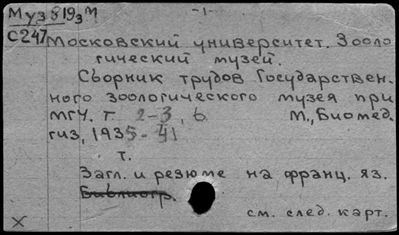 Муз 819з М
-1-
С247
Московский университет. Зооло
гический музей.
Сборник трудов Государствен.
ного зоологического музея при
МГУ. т 2-3, 6. М., Биомед
гиз, 1935-41
т.
Загл. и резюме на франц. яз.
Библиогр.
см. след. карт.
х